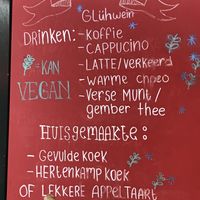 Glühwein
DRINKEN: - KOFFIE
- CAPPUCINO
- LATTE/VERKEERD
= KAN VEGAN
- WARME CHOCO
- VERSE MUNT/
gember thee
HUISGEMAAKTE:
- GEVULDE KOEK
- HERTENKAMP KOEK
OF LEKKERE APPELTAART